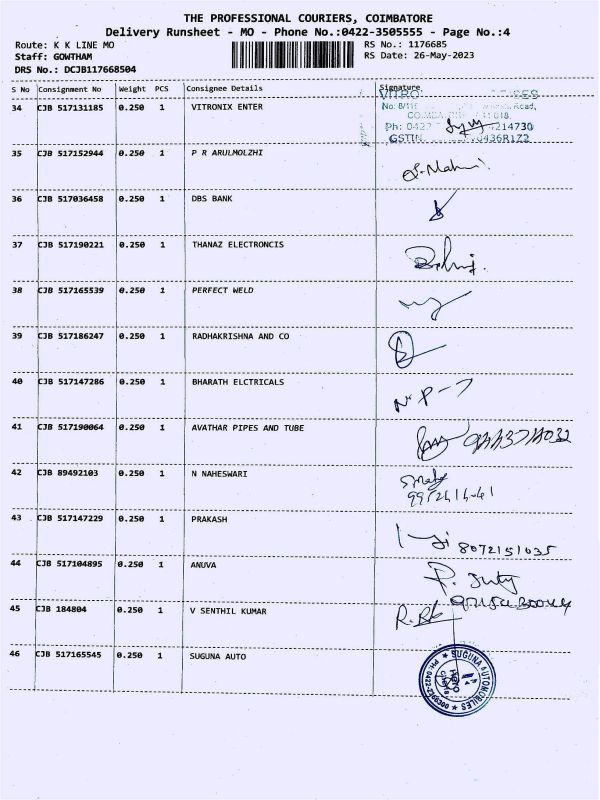 THE PROFESSIONAL COURIERS, COIMBATORE
Delivery Runsheet - MO - Phone No.:0422-3505555 - Page No.:4
Route: K K LINE MO
RS No.: 1176685
Staff: GOWTHAM
RS Date: 26-May-2023
DRS No.: DCJB117668504
S No Consignment No Weight PCS Consignee Details Signature
34 CJB 517131185 0.250 1 VITRONIX ENTER
Road,
Ph: 0422 214730
GSTIN
35 CJB 517152944 0.250 1 P R ARULMOLZHI
36 CJB 517036458 0.250 1 DBS BANK
37 CJB 517190221 0.250 1 THANAZ ELECTRONCIS
38 CJB 517165539 0.250 1 PERFECT WELD
39 CJB 517186247 0.250 1 RADHAKRISHNA AND CO
40 CJB 517147286 0.250 1 BHARATH ELCTRICALS
41 CJB 517190064 0.250 1 AVATHAR PIPES AND TUBE
42 CJB 89492103 0.250 1 N NAHESWARI
43 CJB 517147229 0.250 1 PRAKASH
8072151035
44 CJB 517104895 0.250 1 ANUVA
45 CJB 184804 0.250 1 V SENTHIL KUMAR
46 CJB 517165545 0.250 1 SUGUNA AUTO
SUGUNA AUTOMOBILES